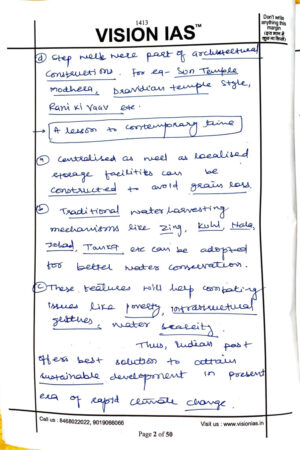 1413
VISION IAS™
Don't write
anything this
margin
(इस भाग में
कुछ ना लिखें)
d) Step wells were part of architectural
constructions. For eg- Sun Temple
Modhera, Dravidian temple style,
Rani ki vaav etc.
→ A lesson to contemporary time
a) Centralised as well as localised
storage facilities can be
constructed to avoid grain loss.
b) Traditional water harvesting
mechanisms like Zing, Kuhl, Nala,
Johad, Tanka etc can be adopted
for better water conservation.
c) These features will help combating
issues like poverty, infrastructural
glitches, water scarcity.
Thus, Indian past
offers best solution to attain
sustainable development in present
era of rapid climate change.
Call us : 8468022022, 9019066066
Visit us : www.visionias.in
Page 2 of 50